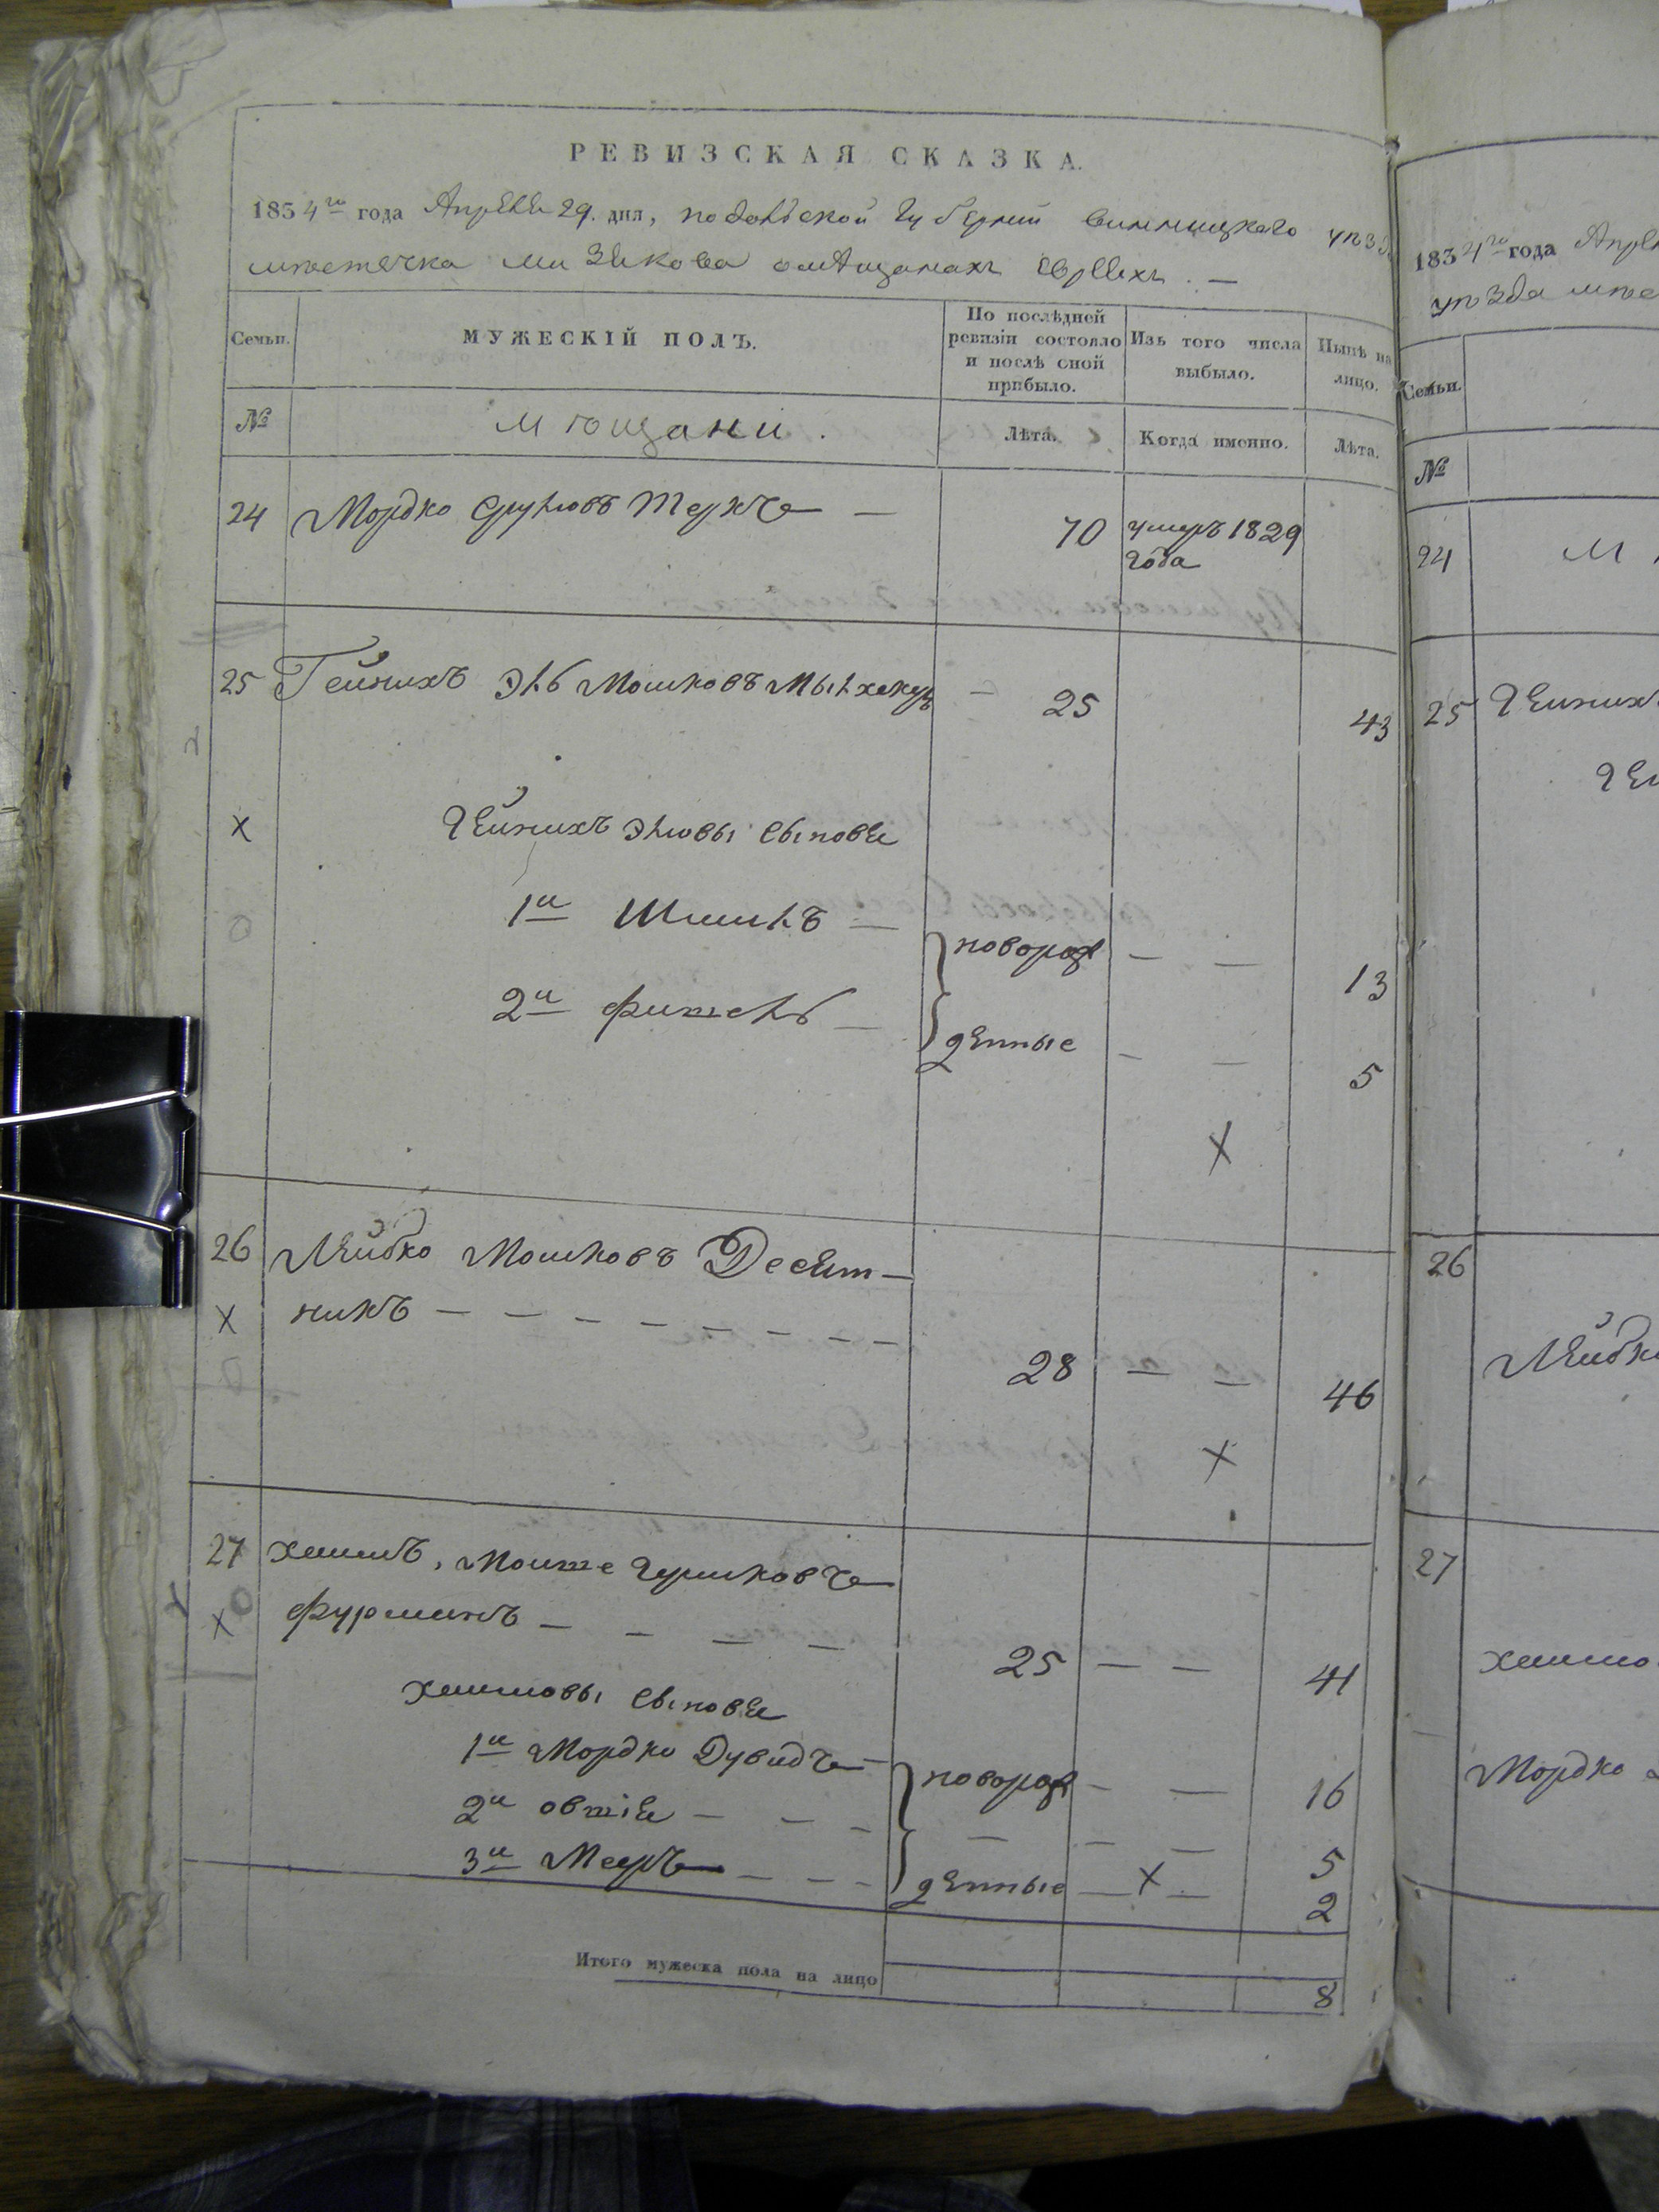 РЕВИЗСКАЯ СКАЗКА.
1834го года Апреля 29. дня, подольской губернии винницкаго уѣзд
мѣстечка Мизякова о мѣщанахъ Евреяхъ. —
Семьи. МУЖЕСКІЙ ПОЛЪ. По послѣдней ревизіи состояло и послѣ оной прибыло. Изъ того числа выбыло. Нынѣ на лицо.
№ Мѣщани. Лѣта. Когда именно. Лѣта.
24 Мордко Сруловъ — 70 умеръ 1829
года
25 Гейнихъ Эль Мошковъ — 25 43
Гейнихъ Эловы сыновя
1й Шмиль — новорож — — 13
2й Фишель — денные — — 5
26 Лейбко Мошковъ Десят—
никъ — 28 — — 46
27 Хаимъ, Мошке Гершкова
Фурманъ — — — — 25 — — 41
Хаимовы сыновя
1й Мордко Дувидъ — новорож — — 16
2й Овшія — — — — — — 5
3й Мееръ — — — денные — — 2
Итого мужеска пола на лицо 8
1834го года Апрел
уѣзда мѣс
Семьи.
№
24 М
25 Гейнихъ
Ге
26
Лейбк
27
Хаимо
Мордко